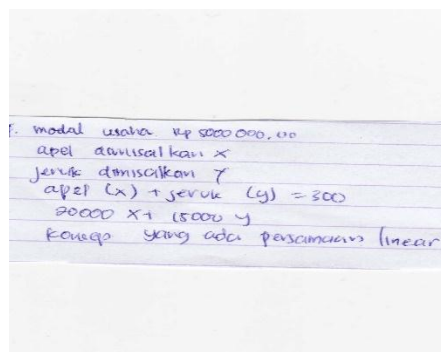 modal usaha Rp 5000 000,00
apel dimisalkan x
jeruk dimisalkan y
apel (x) + jeruk (y) = 300
20000 x + 15000 y
konsep yang ada persamaan linear